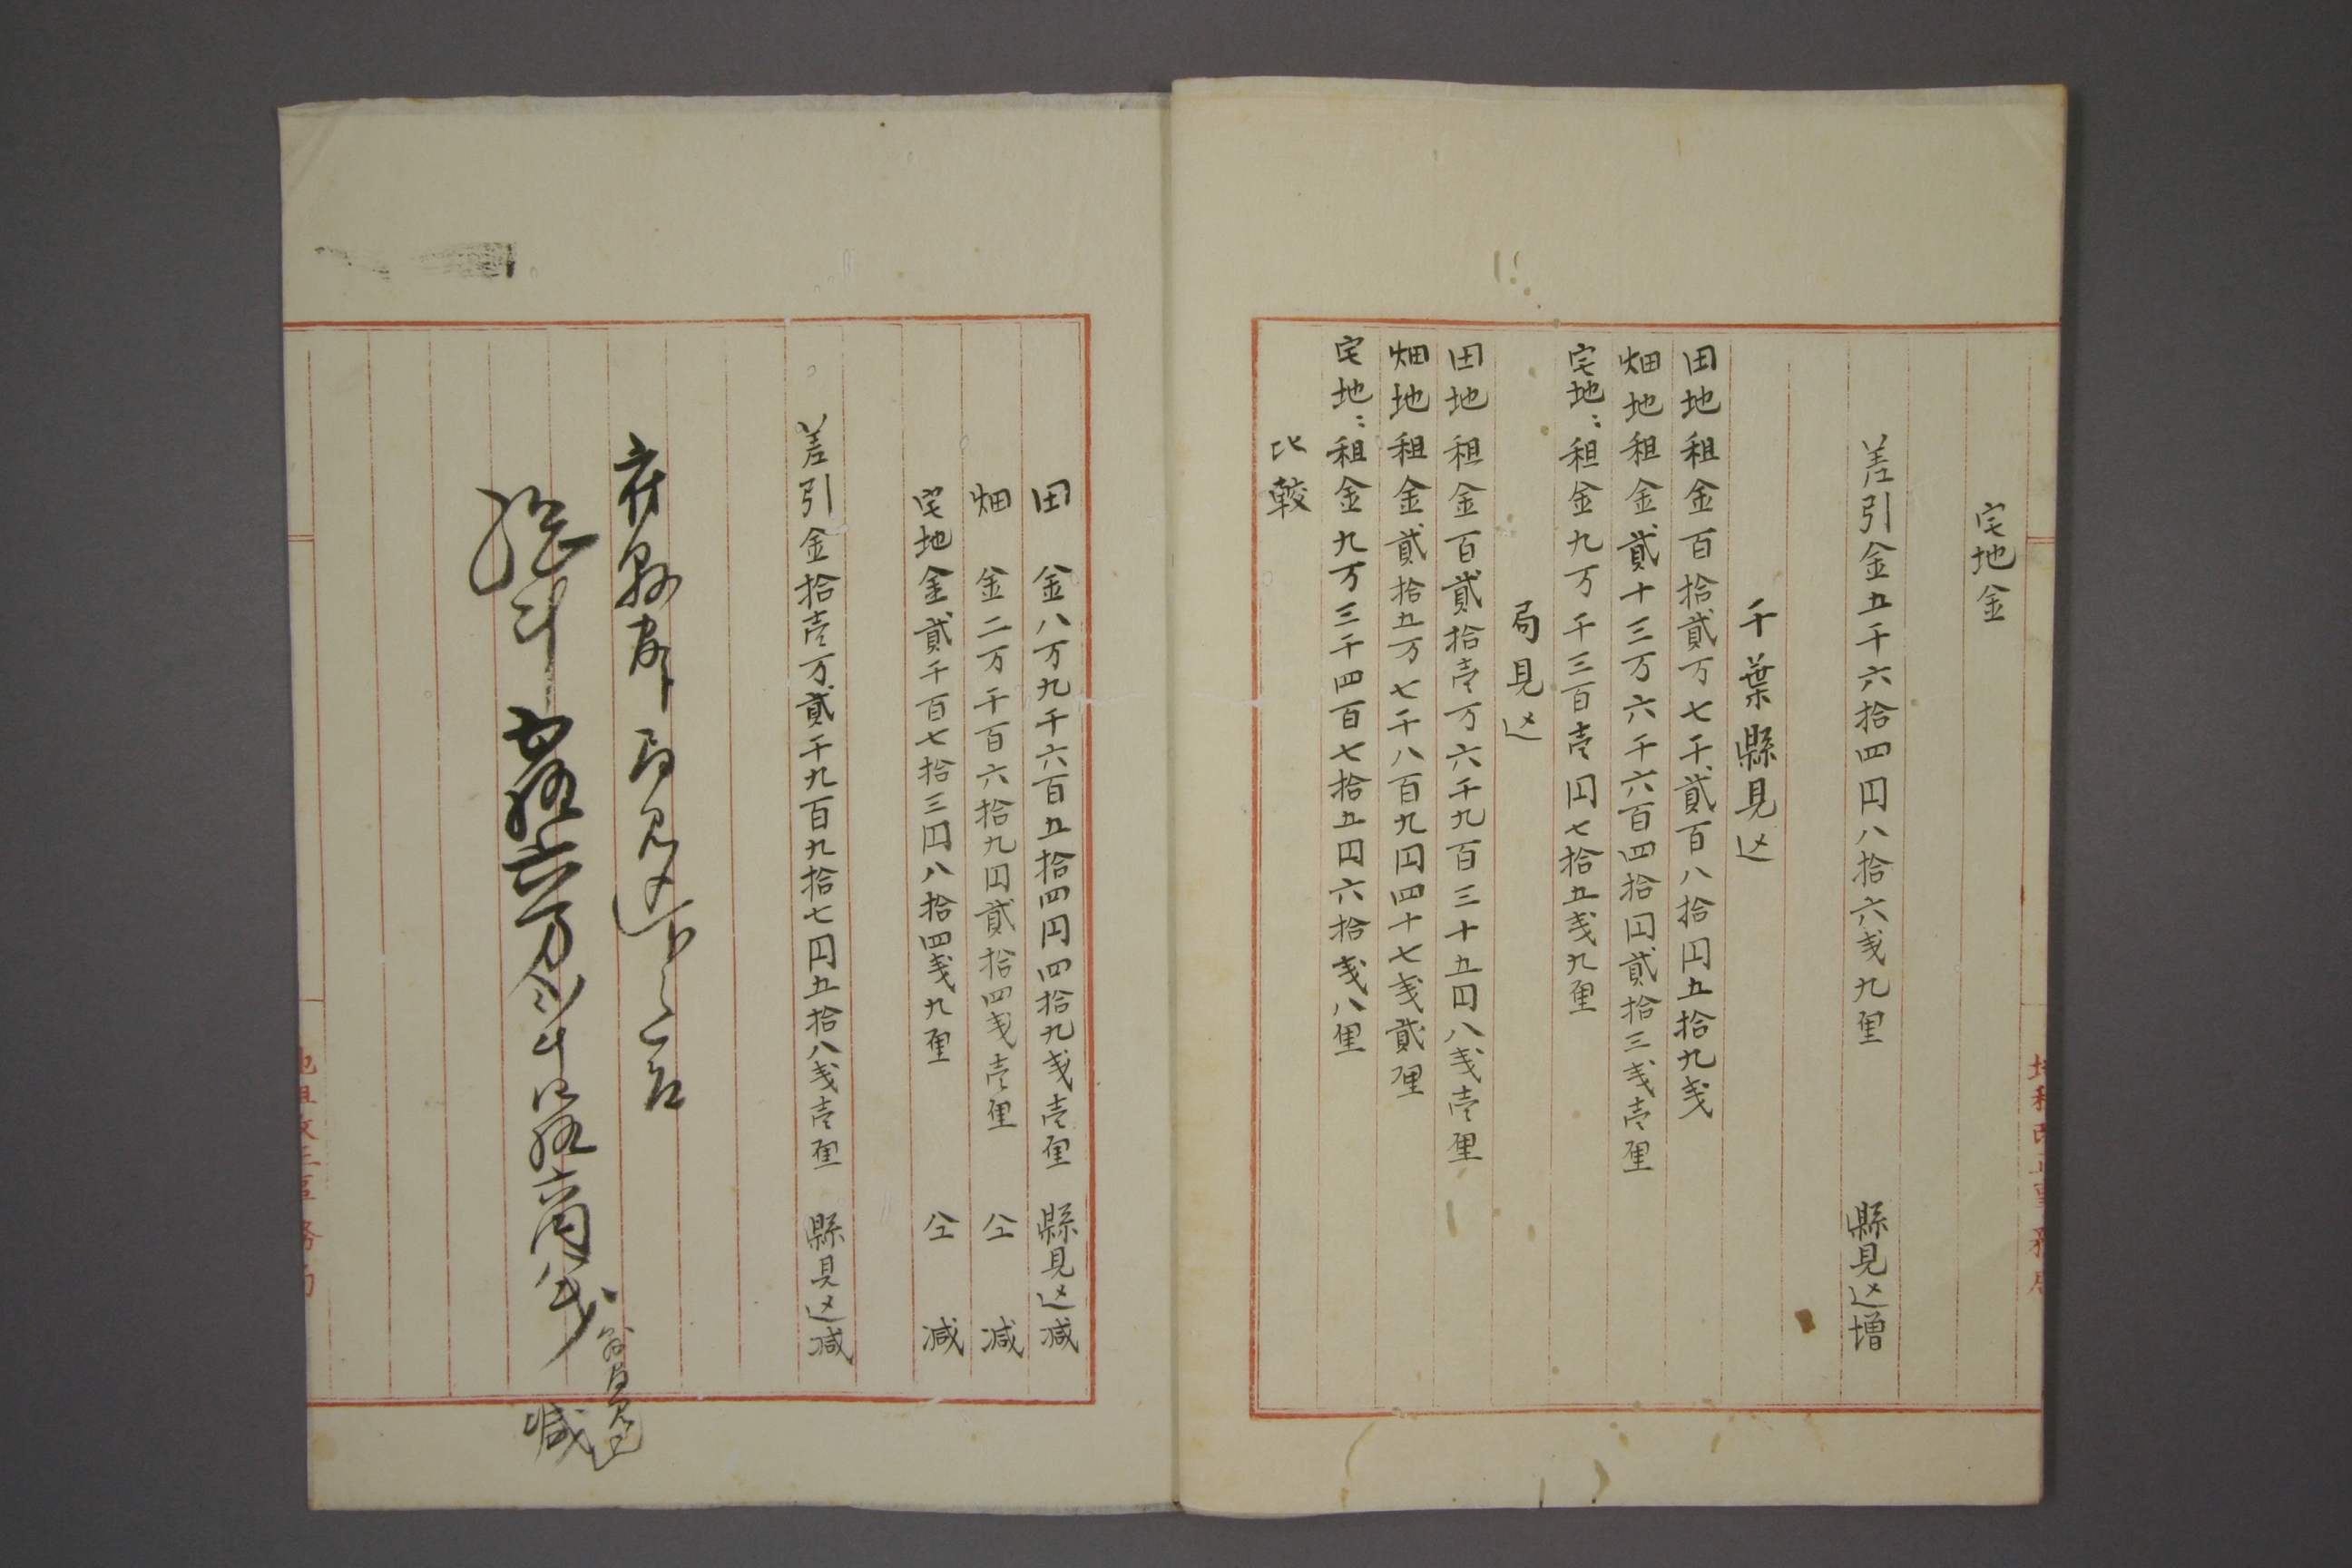 宅地金
差引金五千六拾四円八拾六戔九厘　縣見込増
千葉縣見込
田地租金百拾貳万七千貳百八拾円五拾九戔
畑地租金貳十三万六千六百四拾円貳拾三戔壱厘
宅地〻租金九万千三百壱円七拾五戔九厘
局見込
田地租金百貳拾壱万六千九百三十五円八戔壱厘
畑地租金貳拾五万七千八百九円四十七戔貳厘
宅地〻租金九万三千四百七拾五円六拾戔八厘
比較
田　金八万九千六百五拾四円四拾九戔壱厘　縣見込減
畑　金二万千百六拾九円貳拾四戔壱厘　仝　減
宅地金貳千百七拾三円八拾四戔九厘　仝　減
差引金拾壱万貳千九百九拾七円五拾八戔壱厘　縣見込減
局見込
減
地租改正事務局